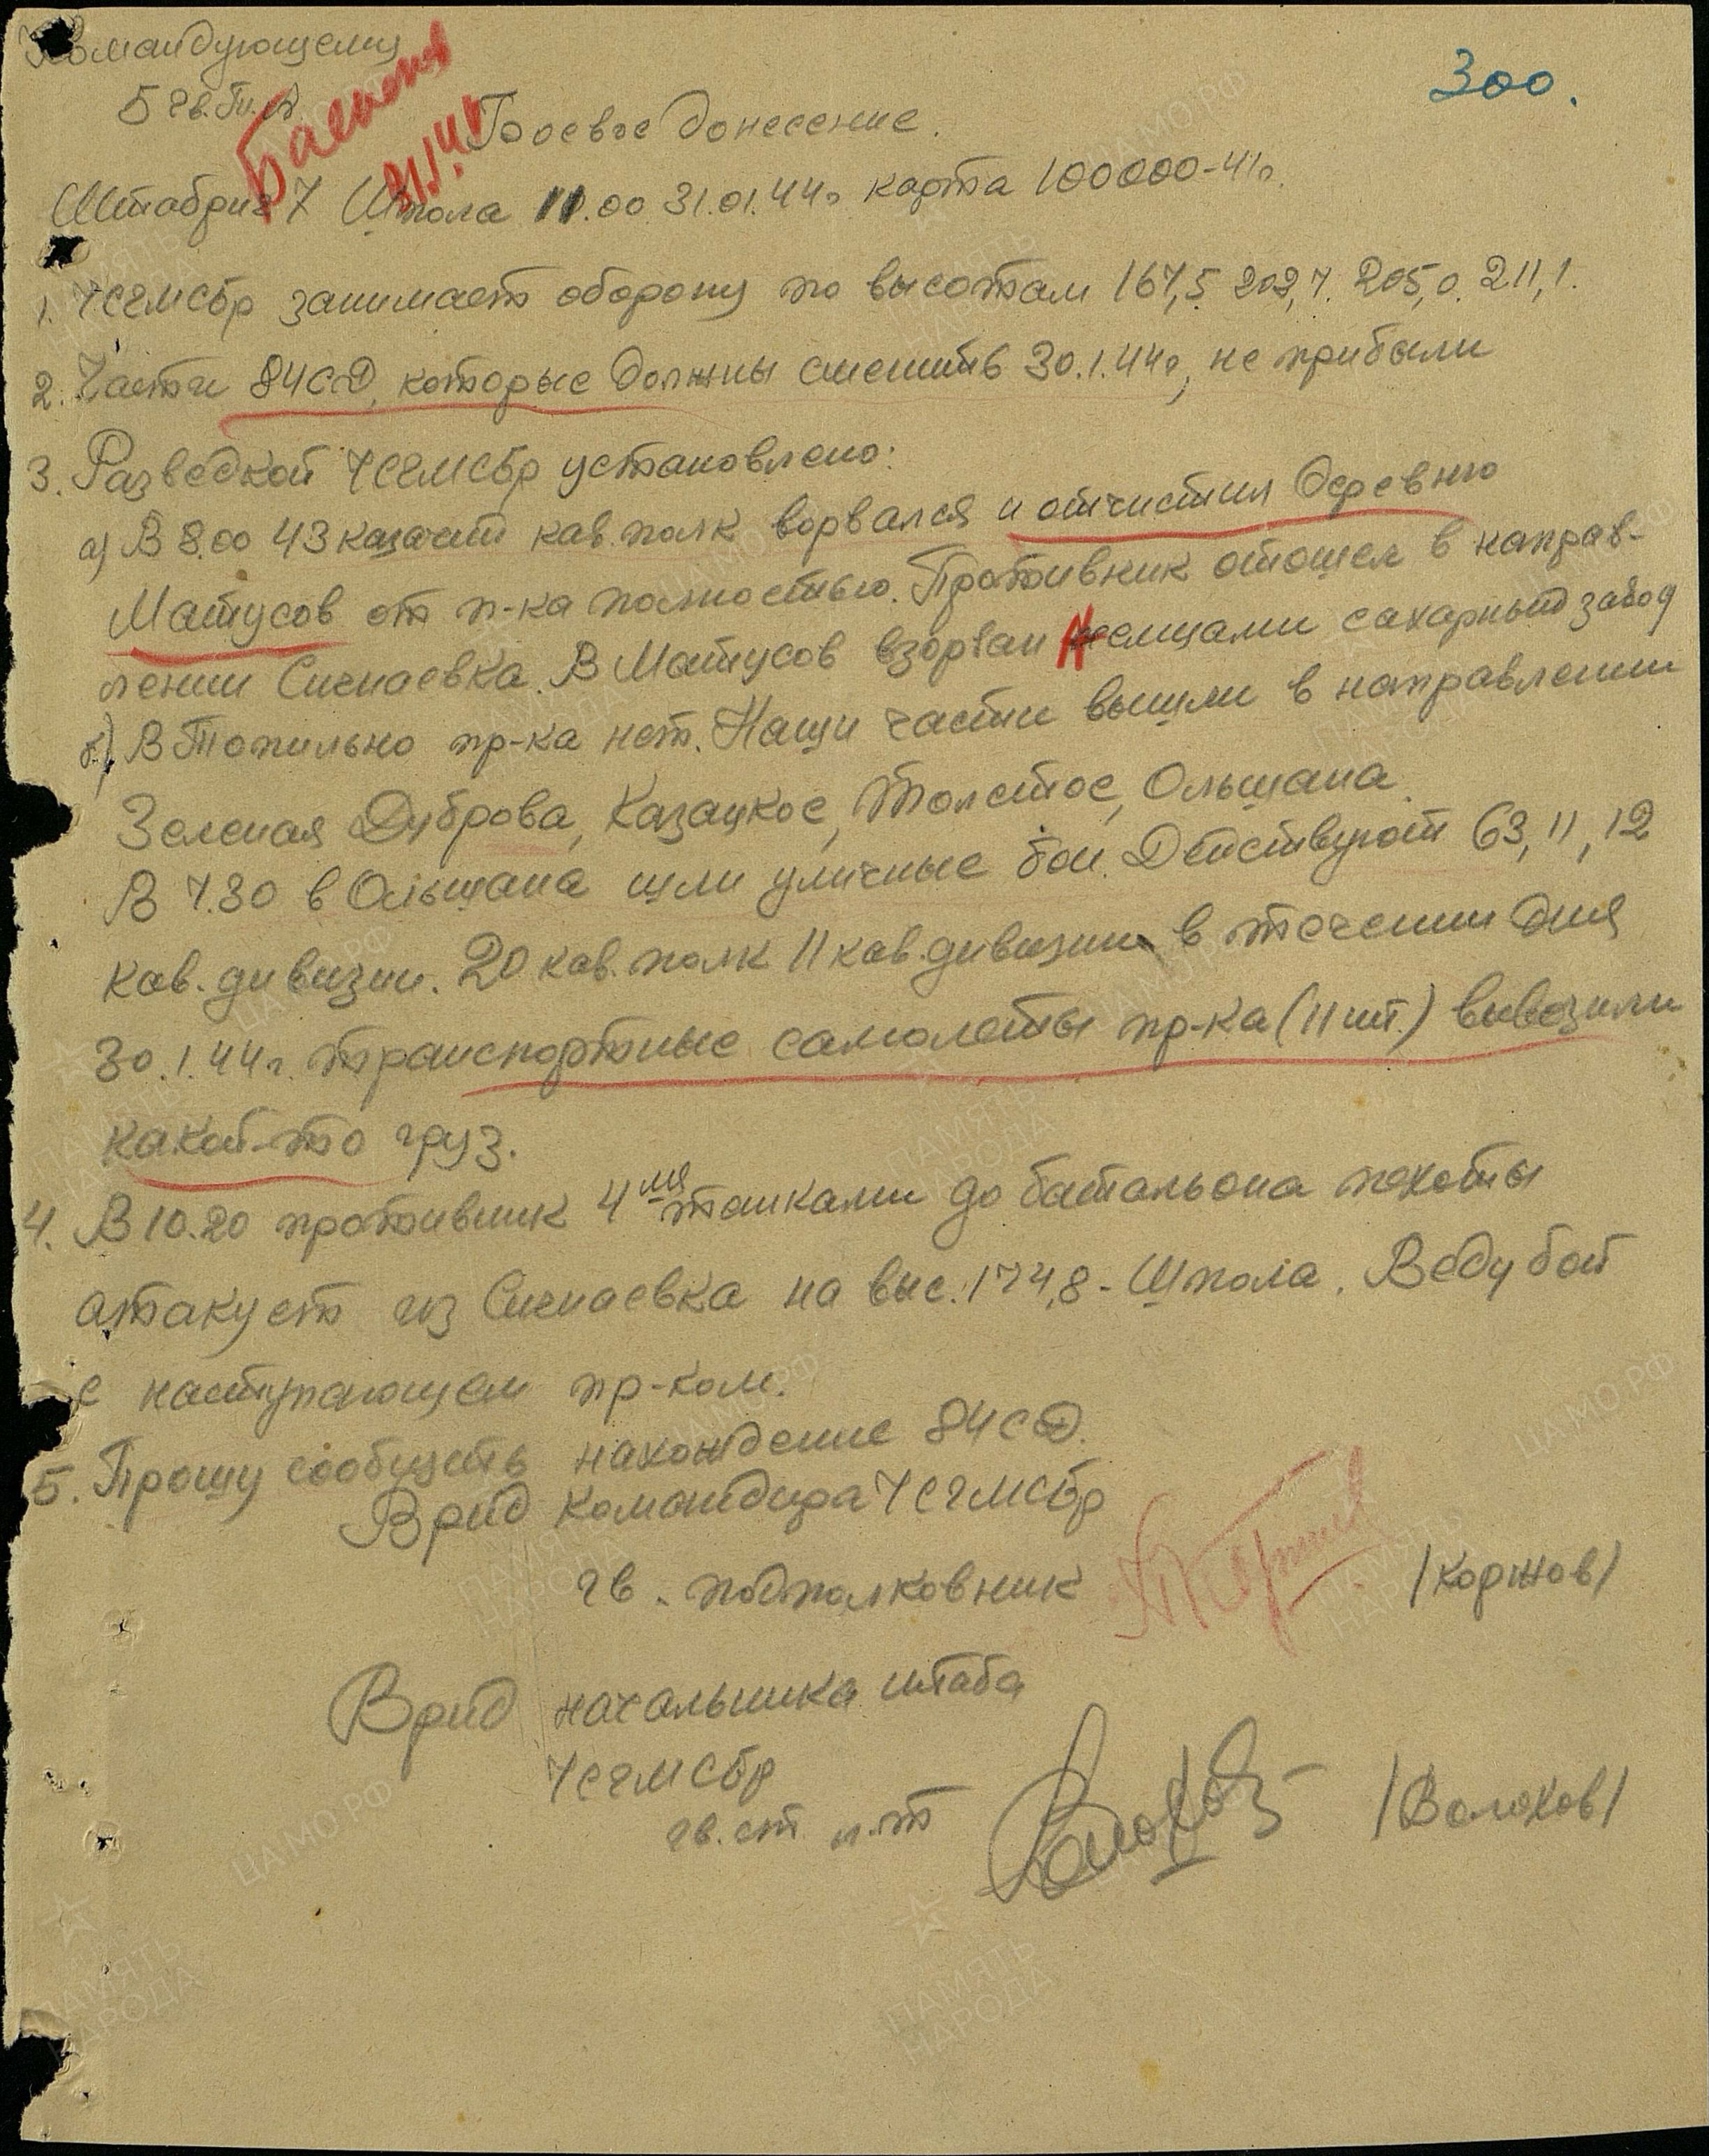 Командующему
300.
5 гв. Тп. А
Боевое донесение.
31.1.44
Штабриг 7 Шпола 11.00 31.01.44г карта 100000-41г.
1. 7СГМСбр занимает оборону по высотам 167,5 202,7. 205,0. 211,1.
2. Части 84СД, которые должны сменить 30.1.44г, не прибыли
3. Разведкой 7СГМСбр установлено:
а) В 8.00 43 казачий кав. полк ворвался и отчистил деревню
Матусов от п-ка полностью. Противник отошел в направ-
лении Сигнаевка. В Матусов взорван Немцами сахарный завод
б) В Топильно пр-ка нет. Наши части вышли в направлении
Зеленая Дуброва, Казацкое, Толстое, Ольшана.
В 7.30 в Ольшана шли уличные бои. Действуют 63, 11, 12
кав. дивизии. 20 кав. полк 11 кав. дивизии в течении дня
30.1.44г. транспортные самолеты пр-ка (11 шт.) вывозили
какой-то груз.
4. В 10.20 противник 4мя танками до батальона пехоты
атакует из Сигнаевка на выс. 174,8 - Шпола. Веду бой
с наступающем пр-ком.
5. Прошу сообщить нахождение 84СД.
Врид командира 7СГМСбр
гв. подполковник /Коржов/
Врид начальника штаба
7СГМСбр
гв. ст л-т /Волохов/